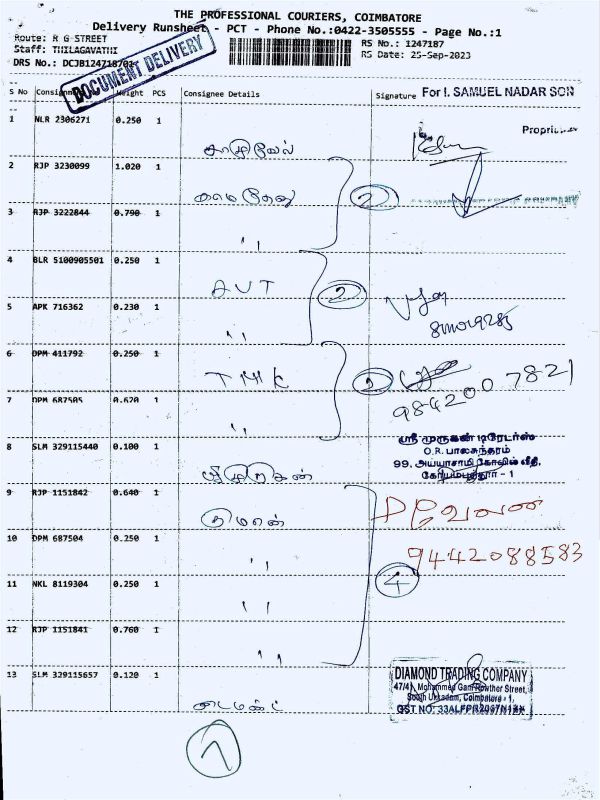 THE PROFESSIONAL COURIERS, COIMBATORE
Delivery Runsheet - PCT - Phone No.:0422-3505555 - Page No.:1
Route: R G STREET
RS No.: 1247187
Staff: THILAGAVATHI
RS Date: 25-Sep-2023
DRS No.: DCJB124718701
DOCUMENT DELIVERY
S No Consignment No Weight PCS Consignee Details Signature For I. SAMUEL NADAR SON
1 NLR 2306271 0.250 1
சாமுவேல்
2 RJP 3230099 1.020 1
காமதேனு
2
3 RJP 3222844 0.790 1
,,
4 BLR 5100905501 0.250 1
AVT
2
5 APK 716362 0.230 1
,,
6 DPM 411792 0.250 1
TMK
2
9842007821
7 DPM 687505 0.620 1
,,
ஸ்ரீ முருகன் டிரேடர்ஸ்
O.R. பாலசுந்தரம்
8 SLM 329115440 0.100 1
99, அய்யாசாமி கோவில் வீதி,
கோயம்புத்தூர் - 1
ஸ்ரீமுருகன்
9 RJP 1151842 0.640 1
10 DPM 687504 0.250 1
9442088583
,,
4
11 NKL 8119304 0.250 1
,,
12 RJP 1151841 0.760 1
,,
13 SLM 329115657 0.120 1
DIAMOND TRADING COMPANY
47/41, Mohammed Gani Rowther Street,
South Ukkadam, Coimbatore - 1,
டைமண்ட்
7